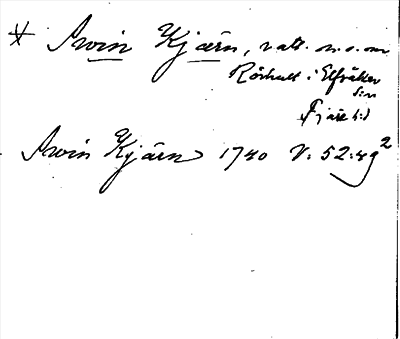 * Arvin Kjärn, vatt. n.o. om
Rörhult i Elfsåker
s:n
Fjäre h:d
Arvin Kjärn 1740 V. 52:49²